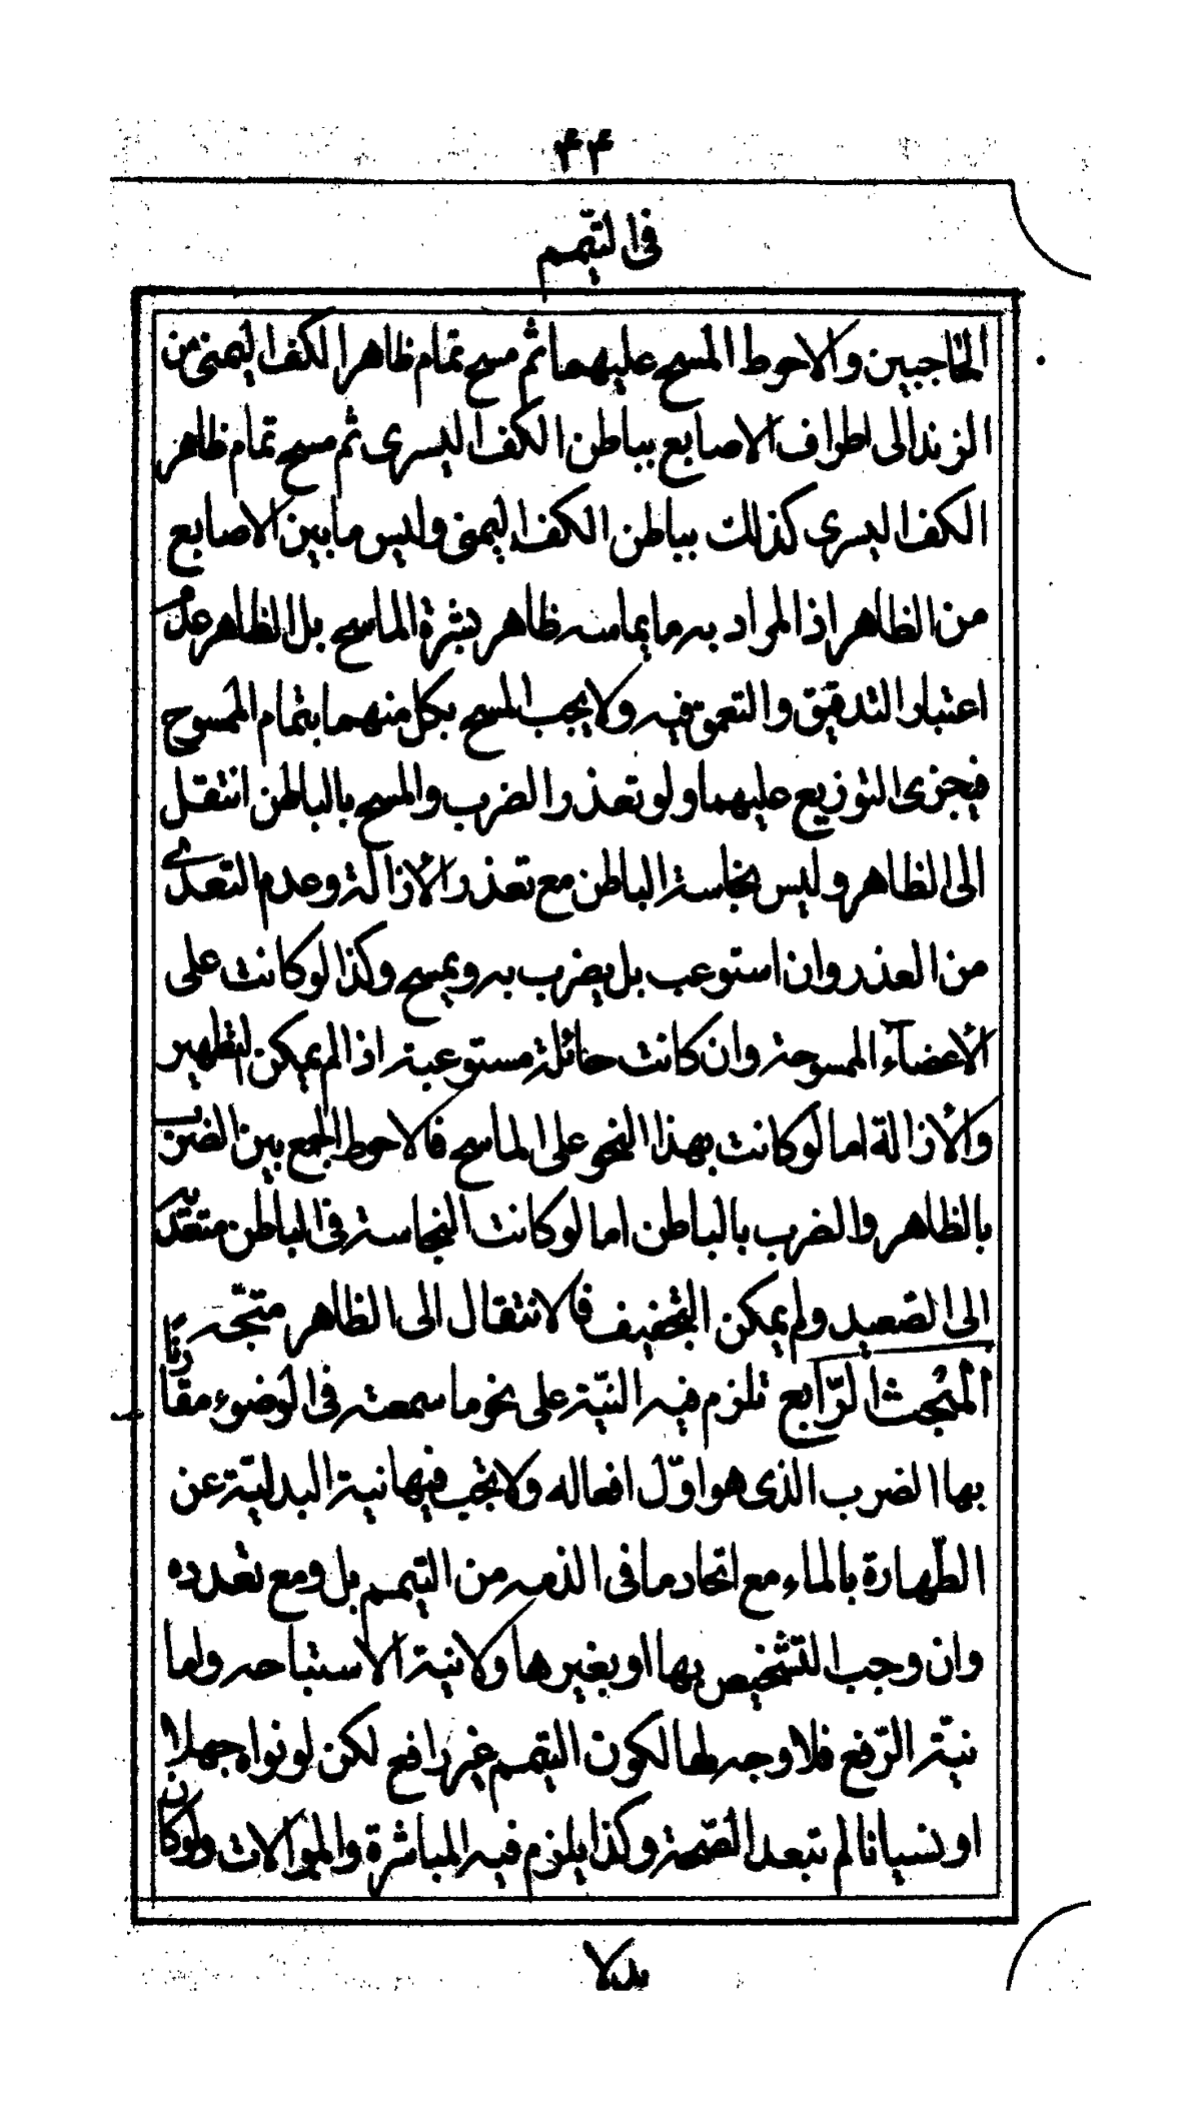 ۴۴
فی التیمم
الحاجبین والاحوط المسح علیهما ثم مسح تمام ظاهر الکف الیمنی من
الزند الی اطراف الاصابع بباطن الکف الیسری ثم مسح تمام ظاهر
الکف الیسری کذلک بباطن الکف الیمنی ولیس ما بین الاصابع
من الظاهر اذ المراد به ما یماسه ظاهر بشرة الماسح بل الظاهر عدم
اعتبار التدقیق والتعمق فیه ولا یجب المسح بکل منهما بتمام الممسوح
فیجزی التوزیع علیهما ولو تعذر الضرب والمسح بالباطن انتقل
الی الظاهر ولیس نجاسة الباطن مع تعذر الأزالة وعدم التعدی
من العذر وان استوعب بل یضرب به ویمسح وکذا لو کانت علی
الأعضآء الممسوحة وان کانت حائلة مستوعبة اذا لم یمکن التطهیر
والأزالة اما لو کانت بهذا النحو علی الماسح فالاحوط الجمع بین الضرب
بالظاهر والضرب بالباطن اما لو کانت النجاسة فی الباطن متعدیة
الی الصعید ولم یمکن التجفیف فالانتقال الی الظاهر متجّه
المبحث الرّابع تلزم فیه النیّة علی نحو ما سمعته فی الوضوء مقارنًا
بها الضرب الذی هو اوّل افعاله ولا تجب فیها نیة البدلیّة عن
الطّهارة بالماء مع اتحاد ما فی الذمه من التیمم بل ومع تعدده
وان وجب التشخیص بها او بغیرها ولا نیة الاستباحه واما
نیّة الرّفع فلا وجه لها لکون التیمم غیر رافع لکن لو نواه جهلا
او نسیانا لم تبعد الصّحة وکذا یلزم فیه المباشرة والموالات ولو کان
بدلا